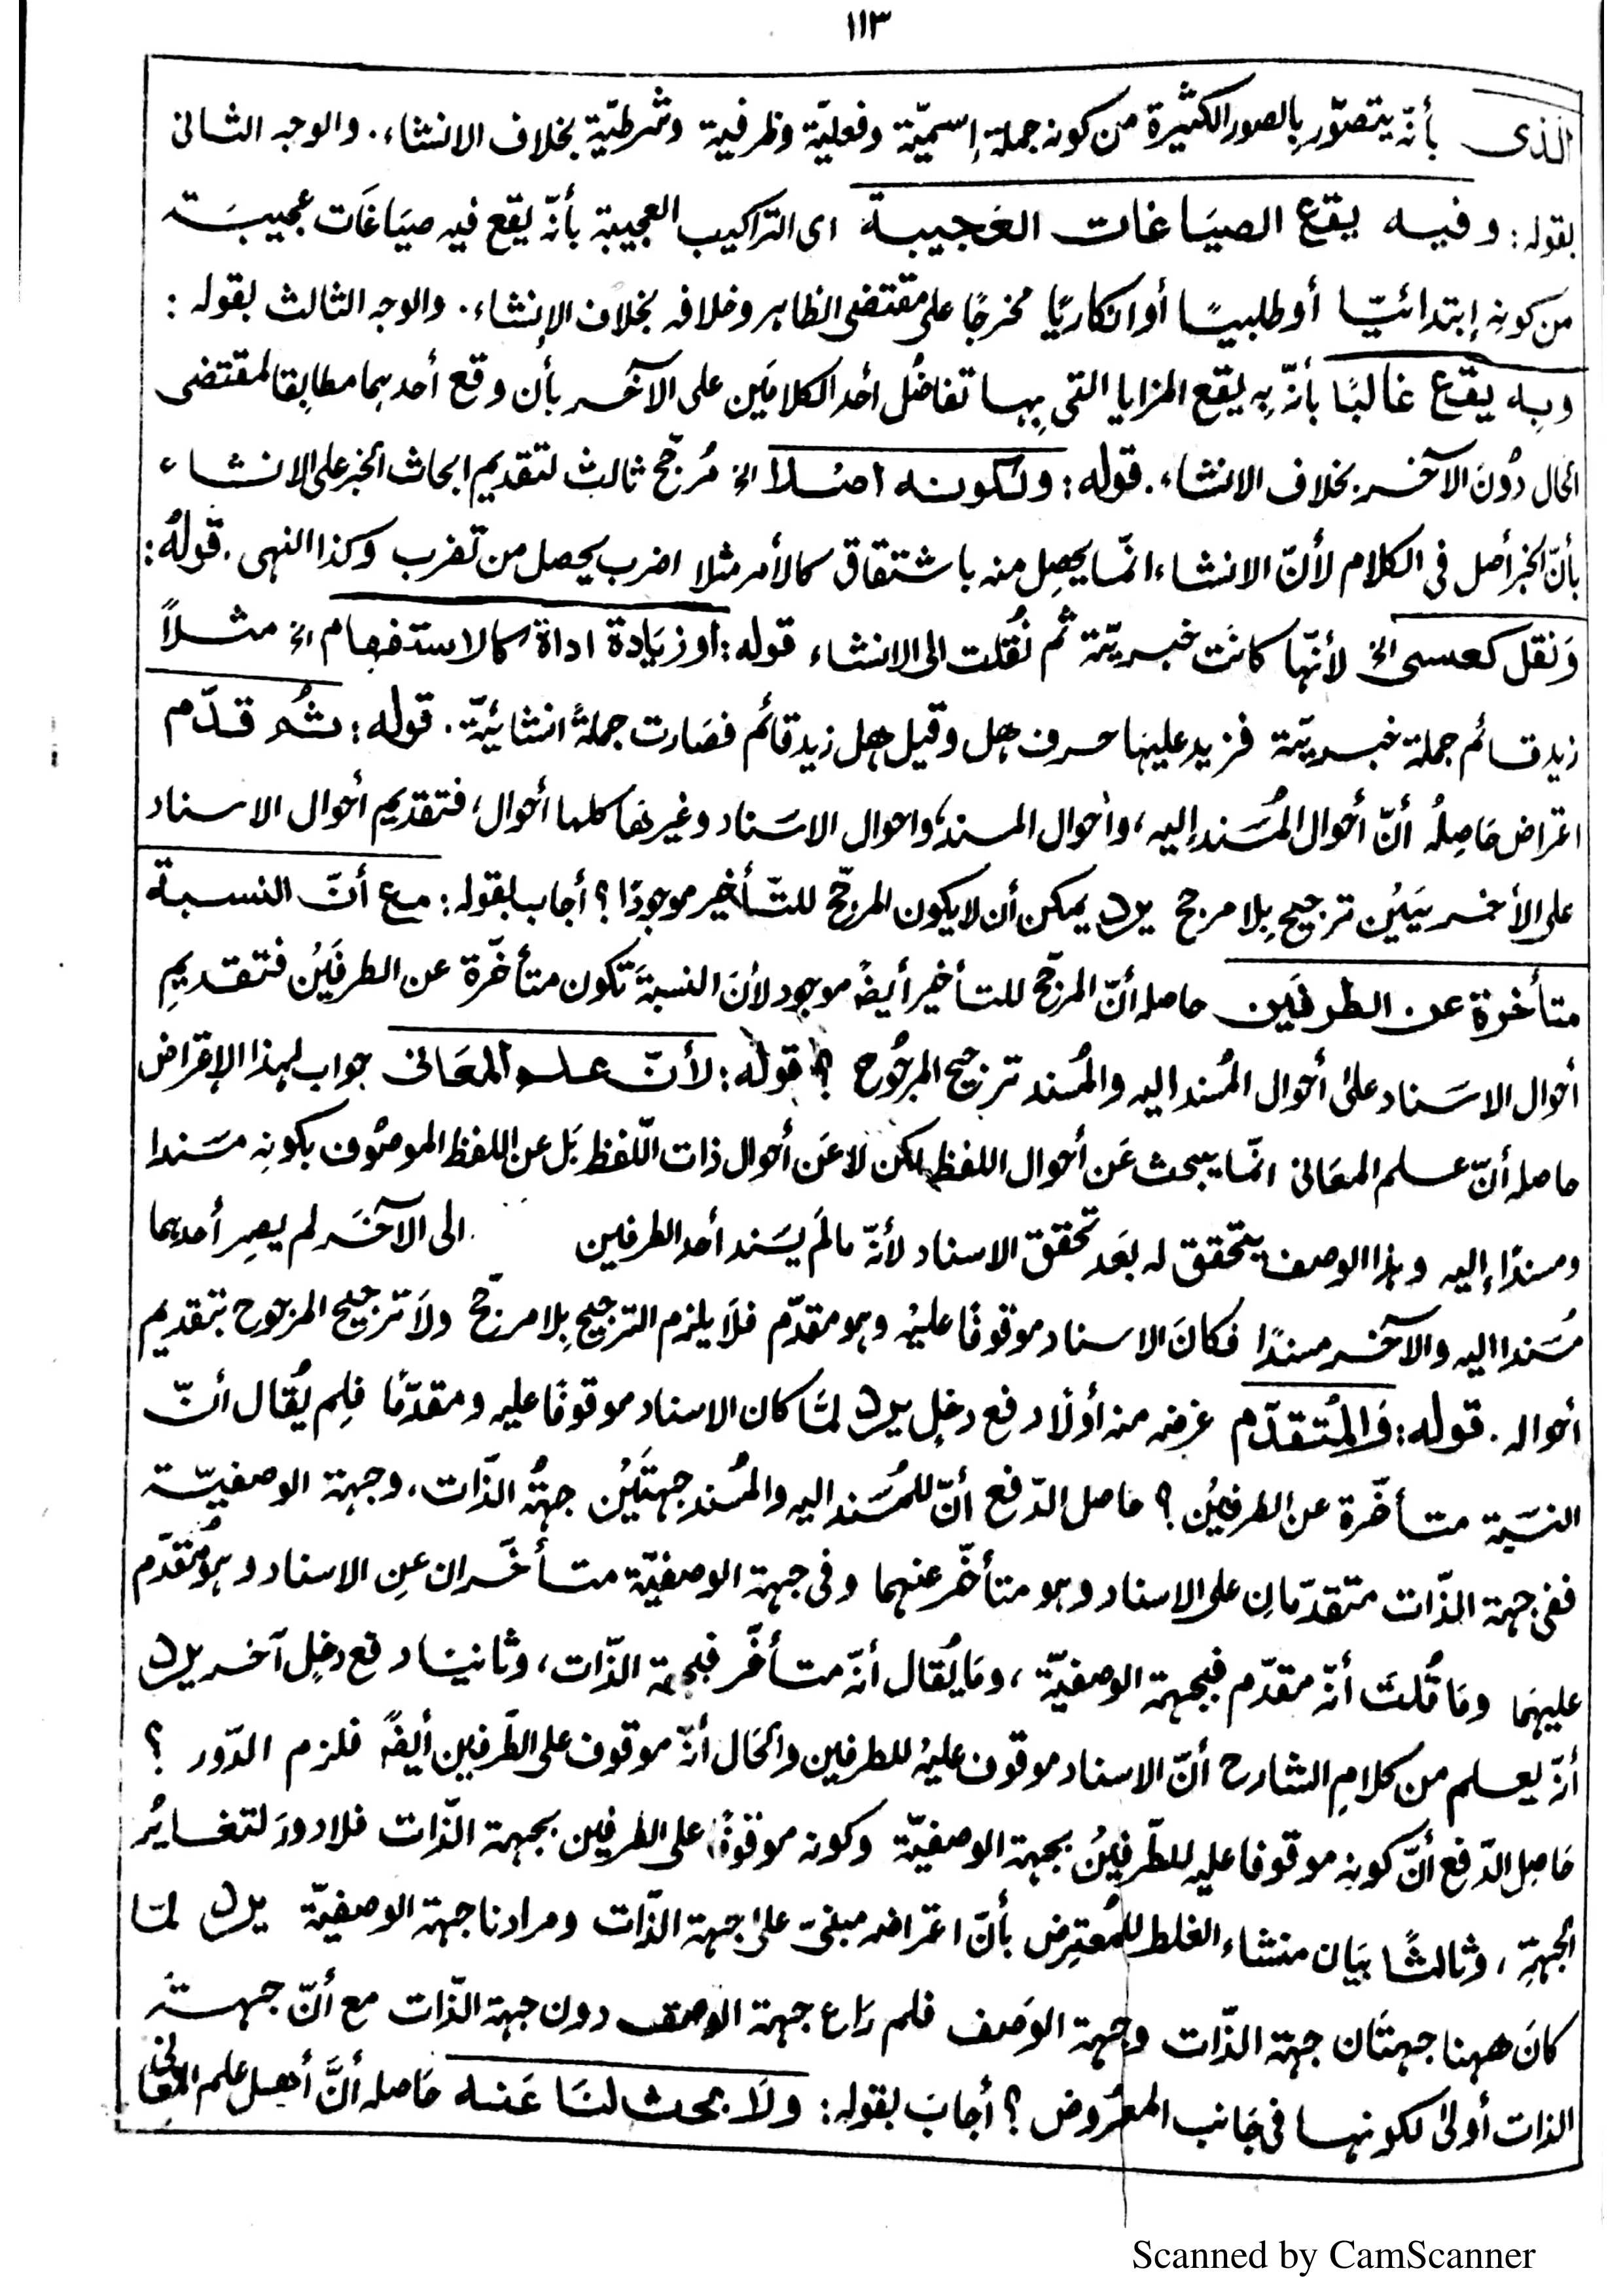 ١١٣
الذى بأنّه يتصوّر بالصور الكثيرة من كونه جملة إسميّة وفعليّة وظرفية وشرطيّة بخلاف الانشاء. والوجه الثانى
بقوله: وفيه يقع الصيَاغات العَجيبة اى التراكيب العجيبة بأنّه يقع فيه صيَاغَات عجيبَة
من كونه إبتدائيّا أو طلبيًا أو انكاريًا مخرجًا على مقتضى الظاهر وخلافه بخلاف الإنشاء. والوجه الثالث بقوله:
وبِه يقع غالبًا بأنّه بِه يقع المزايا التى بِها تفاضُل أحد الكلامَين على الآخر بأن وقع أحدهما مطابِقا لمقتضى
الحال دُونَ الآخر بخلاف الانشاء. قوله: ولكونه اصلا الخ مُرجّح ثالث لتقديم ابحاث الخبر على الانشاء
بأنّ الخبر أصل فى الكلام لأنّ الانشاء انمّا يحصل منه باشتقاق كالأمر مثلا اضرب يحصل من تضرب وكذا النهى. قولهُ:
وَنقل كعسى الخ لأنّها كانَت خبريّة ثم نُقلت الى الانشاء قوله: أو زيَادة اداة كالاستفهام الخ مثلاً
زيد قائم جملة خبريّة فزيد عليهَا حرف هل وقيل هل زيد قائم فصَارت جملةً انشائيّة. قوله: ثُم قدّم
اعتراض حَاصِلُه أنّ أحوال المُسَند إليه، وأحوال المسند، واحوال الاسَناد وغيرهَا كلها أحوال، فتقديم أحوال الاسناد
على الأخريَيْن ترجيح بِلا مرجح يرد يمكن أن لا يكون المرجّح للتّأخير موجودًا؟ أجاب بقوله: مع أنّ النسبة
متأخرة عن الطرفَين حاصله أنّ المرجّح للتأخير أيضًا موجود لأنَ النسبةَ تكون متأخّرة عن الطرفَيْن فتقديمِ
أحوال الاسَناد علىٰ أحوال المُسند اليه والمُسند ترجيح المرجُوح؟ قوله: لأنّ علم المعَانى جواب لهذا الإعتراض
حاصله أنّ علم المعَانى انمّا يبحث عَن أحوال اللفظ لكن لا عَن أحوال ذات اللّفظ بَل عن اللفظ الموصُوف بكونِه مسَندا
ومسندًا إليه وهذا الوصف يتحقق له بعَد تحقق الاسناد لأنّه مالَم يسَند أحد الطرفين الى الآخَر لم يصِر أحدهما
مُسَندا اليه والآخر مسندًا فكانَ الاسناد موقوفًا عليْه وهو مقدّم فلَا يلزم الترجيح بِلا مرجّح ولَا ترجيح المرجوح بتقديم
أحواله. قوله: وَالمُتقدّم غرضه منه أوّلًا دفع دخل يرد لمَّا كان الاسناد موقوفًا عليه ومقدّمًا فلِم يُقال أنّ
النسَبة متأخّرة عن الطرفيْن؟ حاصل الدّفع أنّ للمُسَند اليه والمُسند جهتَيْن جهةُ الذّات، وجهة الوصفيّة
ففى جهة الذّات متقدّمانِ على الاسناد وهو متأخّر عنهما وفى جهة الوصفيّة متأخّران عنِ الاسناد وهو مُتقدّم
عليهمَا ومَا قُلتَ أنّه مقدّم فبجهة الوصفيّة، ومَا يُقال أنّه متأخّر فبجهة الذّات، وثانيًا دفع دخل آخر يرد
أنّه يعلم من كلامِ الشارح أنّ الاسناد موقوف عليْه للطرفين والحَال أنّه موقوف على الطّرفين أيضًا فلزم الدّور؟
حَاصل الدّفع أنّ كونه موقوفا عليه للطّرفيْن بجهة الوصفيّة وكونه موقوفًا على الطرفين بجهة الذّات فلا دورَ لتغايُر
الجهةِ، وثالثًا بيَان منشاء الغلط للمُعترِض بأنّ اعتراضه مبنىّ علىٰ جهة الذّات ومرادنا جهة الوصفيّة يرد لمّا
كانَ ههنا جهتَان جهة الذّات وجهة الوَصف فلم رَاع جهة الوصف دون جهة الذّات مع أنّ جهة
الذات أولىٰ لكونها فى جَانب المعرُوض؟ أجابَ بقوله: ولَا بحث لنَا عَنه حَاصله أنَّ أصل علم المعَانى
Scanned by CamScanner